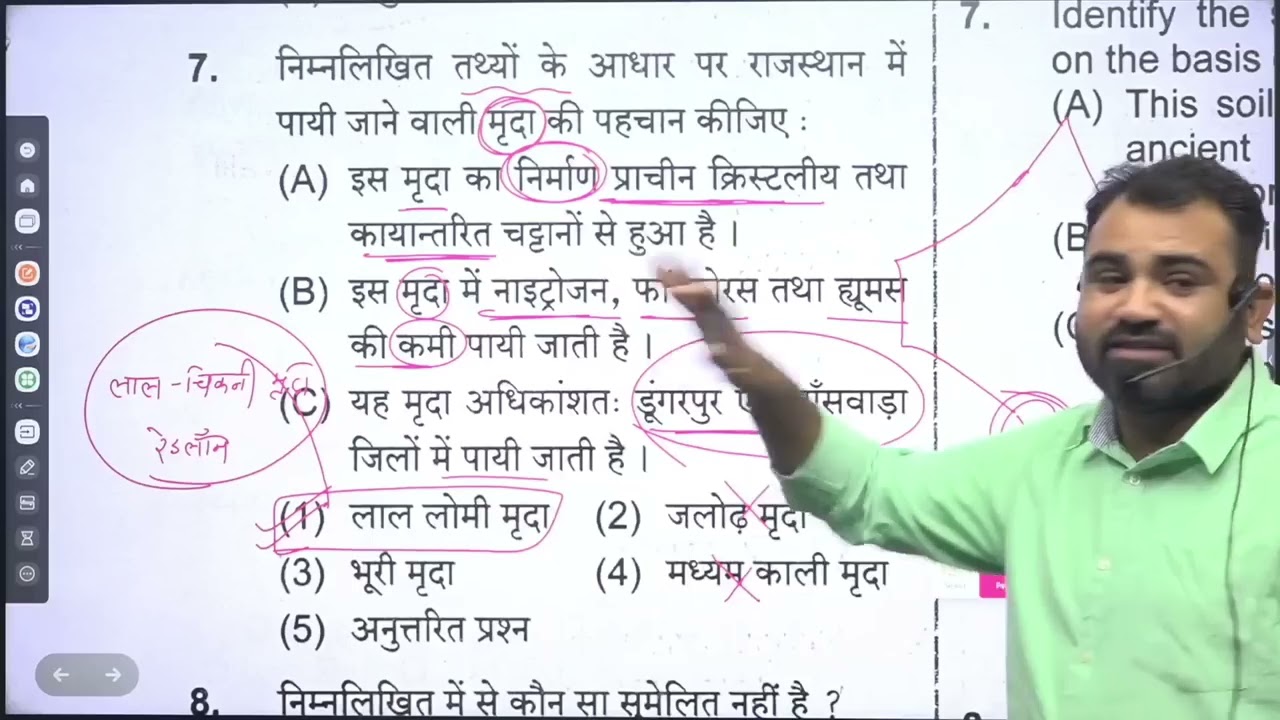 7. निम्नलिखित तथ्यों के आधार पर राजस्थान में
पायी जाने वाली मृदा की पहचान कीजिए :
(A) इस मृदा का निर्माण प्राचीन क्रिस्टलीय तथा
कायान्तरित चट्टानों से हुआ है ।
(B) इस मृदा में नाइट्रोजन, तथा ह्यूमस
की कमी पायी जाती है ।
(C) यह मृदा अधिकांशतः डूंगरपुर
जिलों में पायी जाती है ।
(1) लाल लोमी मृदा (2) जलोढ़ मृदा
(3) भूरी मृदा (4) मध्यम काली मृदा
(5) अनुत्तरित प्रश्न
8. निम्नलिखित में से कौन सा सुमेलित नहीं है ?
लाल - चिकनी
रेडलॉम
7. Identify the
on the basis
(A) This soil
ancient